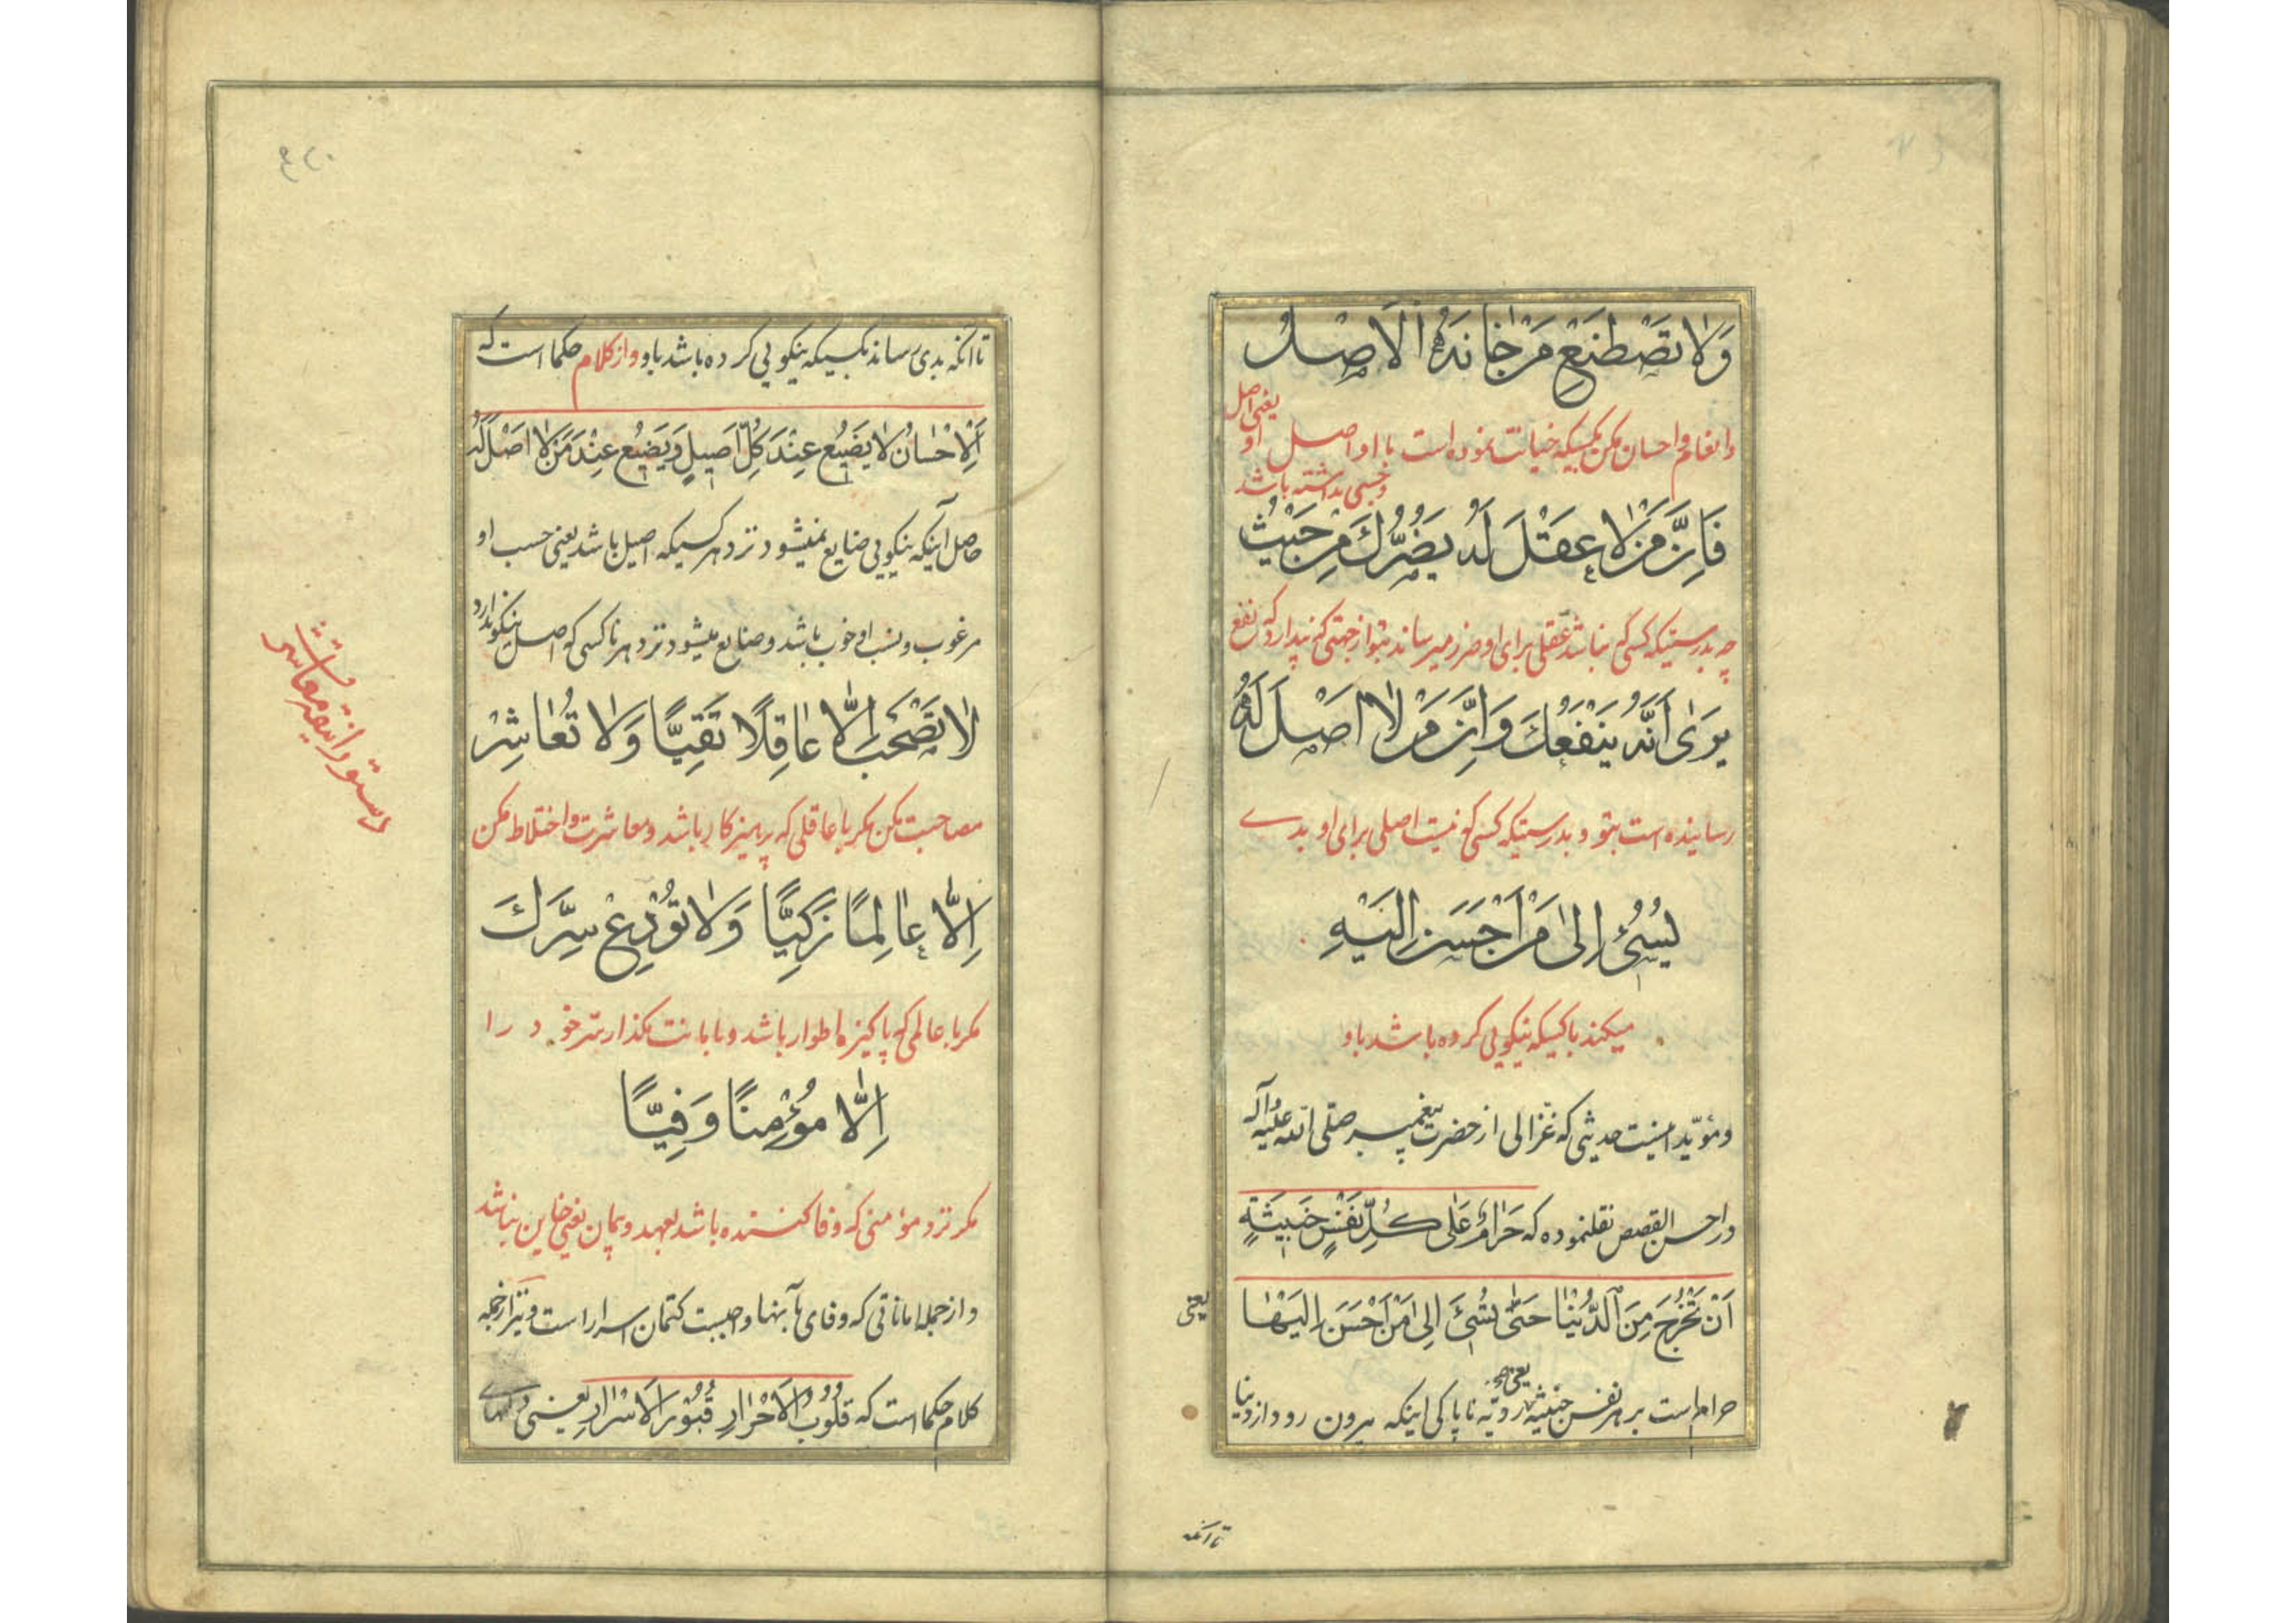 وَلَا تَصْطَنِعْ مَنْ خَانَهُ الْاَصْلُ
وانعام و احسان مکن بکسیکه خیانت نموده است با او اصل او
یعنی اصل
و حسبی نداشته باشد
فَاِنَّ مَنْ لَا عَقْلَ لَهُ يَضُرُّكَ مِنْ حَيْثُ
چه بدرستیکه کسی که نباشد عقلی برای او ضرر میرساند بتو از جهتی که پندارد که نفع
يَرَىٰ اَنَّهُ يَنْفَعُكَ وَاِنَّ مَنْ لَا اَصْلَ لَهُ
رساینده است بتو و بدرستیکه کسی که نیست اصلی برای او بدے
يُسِيئُ اِلىٰ مَنْ اَحْسَنَ اِلَيْهِ
میکند با کسیکه نیکویی کرده باشد باو
و مؤیّد اینست حدیثی که غزالی از حضرت پیغمبر صلّی الله علیه وآله
در احسن القصص نقلنموده که حَرَامٌ عَلَى كُلِّ نَفْسٍ خَبِيثَةٍ
اَنْ تَخْرُجَ مِنَ الدُّنْيَا حَتّىٰ تُسِيئَ اِلىٰ مَنْ اَحْسَنَ اِلَيْهَا
یعنی
حرام است بر هر نفس خبیثه ردیّه ناپاکی اینکه بیرون رود از دنیا
تا آنکه
تا آنکه بدی رساند بکسیکه نیکویی کرده باشد باو و از کلام حکما است که
اَلْاِحْسَانُ لَا يَضِيعُ عِنْدَ كُلِّ اَصِيلٍ وَيَضِيعُ عِنْدَ مَنْ لَا اَصْلَ لَهُ
حاصل آنکه نیکویی ضایع نمیشود نزد هر کسیکه اصیل باشد یعنی حسب او
مرغوب و نسب او خوب باشد و ضایع میشود نزد هر ناکسی که اصل نیکو ندارد
لَا تَصْحَبْ اِلَّا عَاقِلًا تَقِيًّا وَلَا تُعَاشِرْ
مصاحبت مکن مگر با عاقلی که پرهیزکار باشد و معاشرت و اختلاط مکن
اِلَّا عَالِمًا زَكِيًّا وَلَا تُودِعْ سِرَّكَ
مگر با عالمی که پاکیزه اطوار باشد و بامانت مگذار سرّ خود را
اِلَّا مُؤْمِنًا وَفِيًّا
مگر نزد مؤمنی که وفا کننده باشد بعهد و پیمان یعنی خاین نباشد
و از جمله اماناتی که وفای بآنها واجبست کتمان اسرار است و نیز از جمله
کلام حکما است که قُلُوبُ الْاَحْرَارِ قُبُورُ الْاَسْرَارِ یعنی